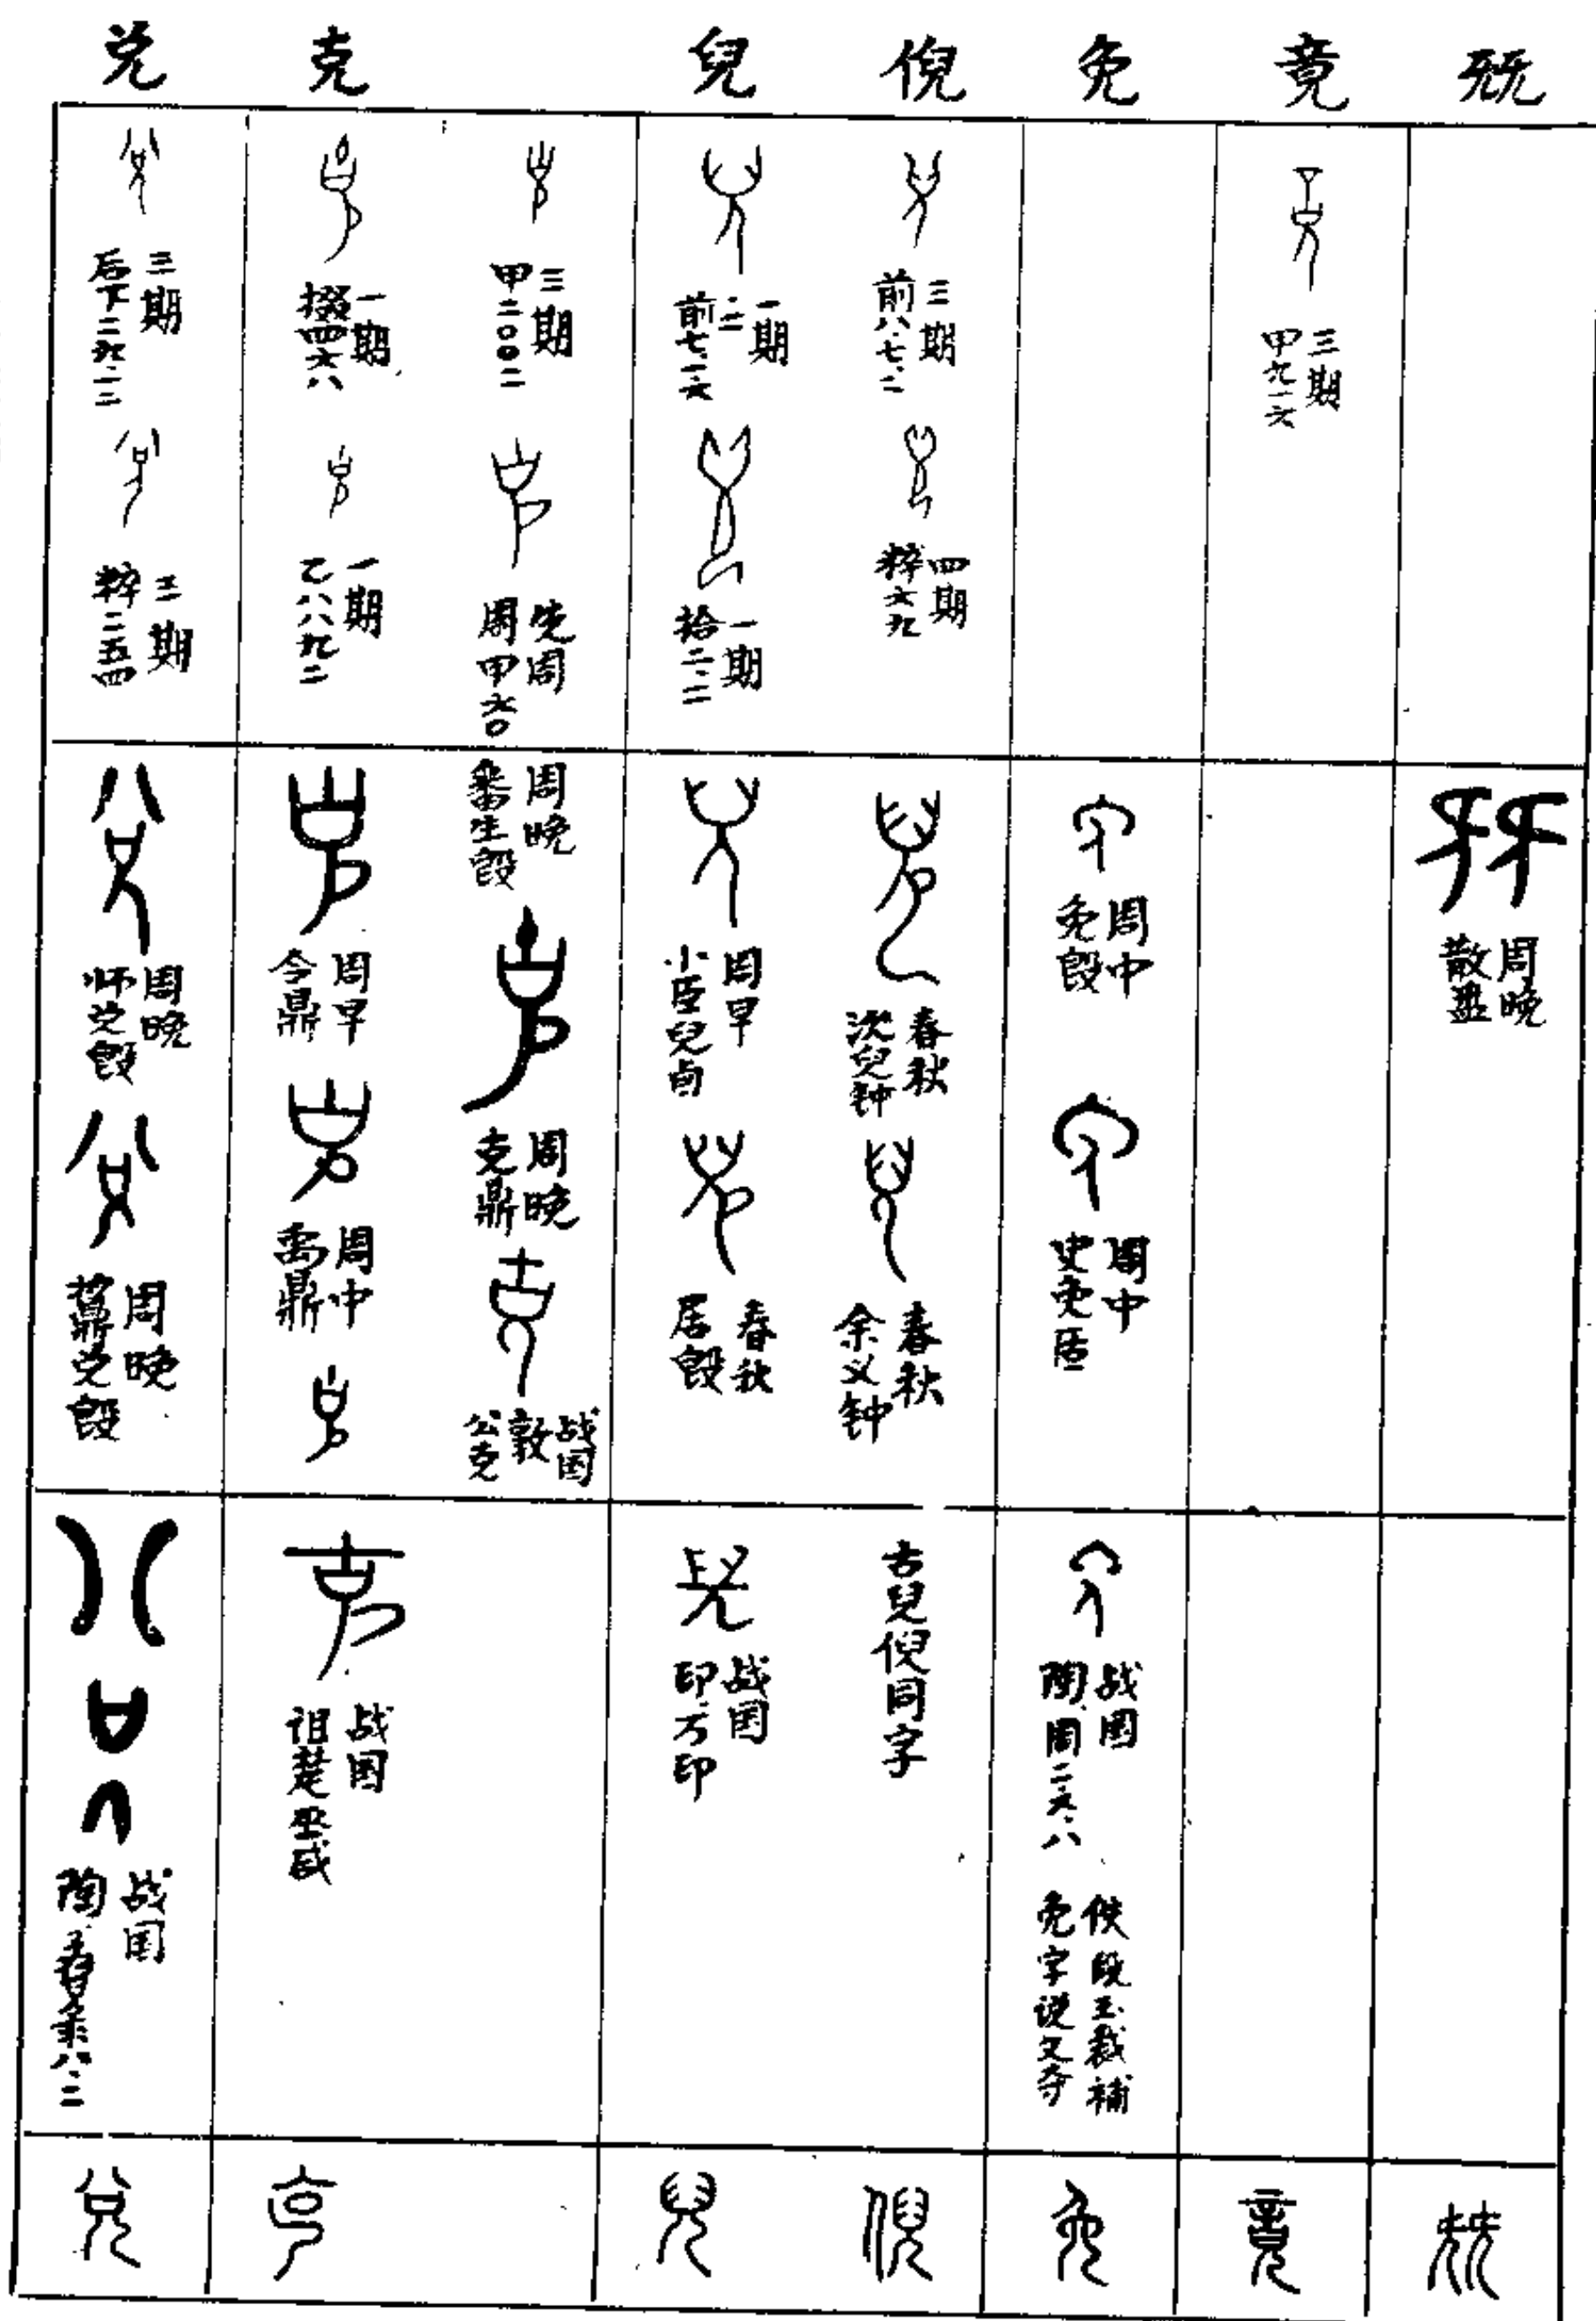 兑 克 兒 倪 免 竟 兓
三期
后下二九·一二
三期
粹二五四
一期
掇四六八
一期
乙八八九二
三期
甲二〇〇二
先周
周甲六〇
一期
一期
拾二·二
三期
前八·七·二
四期
粹六九
三期
甲九一六
周晚
师兑𣪘
周晚
兑𣪘
周早
令鼎
周中
禹鼎
周晚
番生𣪘
周晚
克鼎
战国
公克敦
周早
小臣兒卣
春秋
居𣪘
春秋
沇兒钟
春秋
余义钟
周中
免𣪘
周中
史免匜
周晚
散盘
战国
陶
战国
诅楚巫咸
战国
印·万印
古兒倪同字
战国
陶·周
依段玉裁補
免字说文夺
兑 克 兒 倪 免 竟 兓